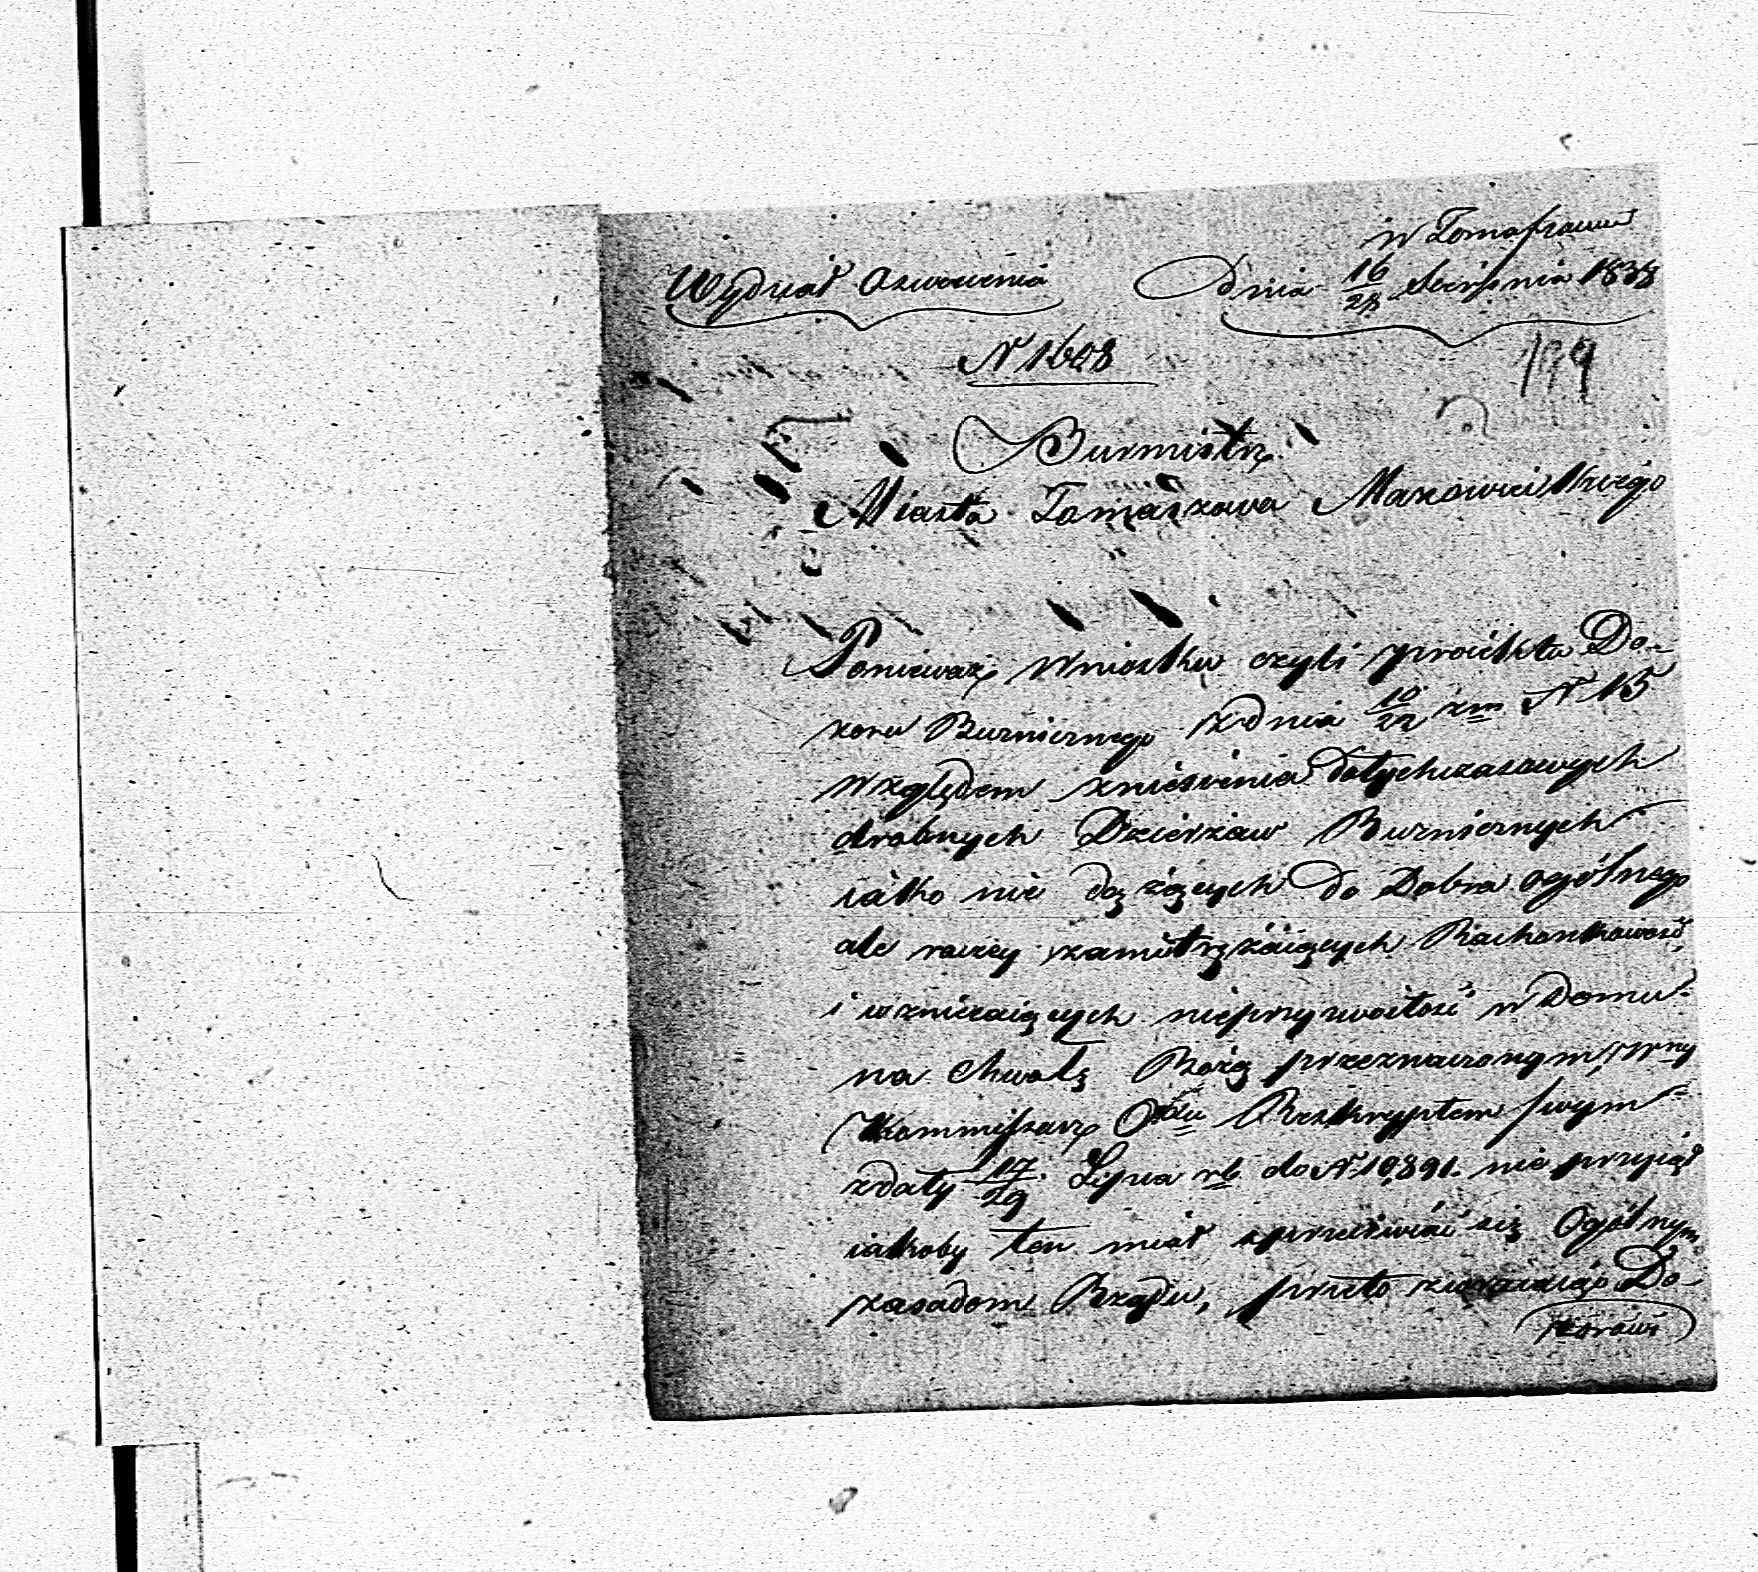 w Tomaszowie
Wydział Oswiecenia Dnia 16/28 Sierpnia 1838
N 1608
199
Burmistrz
Miasta Tomaszowa Mazowieckiego
Ponieważ Wniosku czyli proiektu Do-
zoru Bużnicznego z dnia 10/22 zm N 15
względem zniesienia dotychczasowych
drobnych Dzierżaw Bużnicznych
iako nie dążących do Dobra ogólnego
ale raczey zamitrężaiących Rachonkowość
i wznicaiących nieprzyzwoitość w Domu
na chwałę Bożą przeznaczonym, Wny
Kommissarz Obdu Reskryptem swym
z daty 17/29 Lipca rb do N 10,891. nie przyiął
iakoby ten miał sprzeciwiać się Ogólnym
zasadom Rządu, przeto zwracaiąc Do-
zorowi